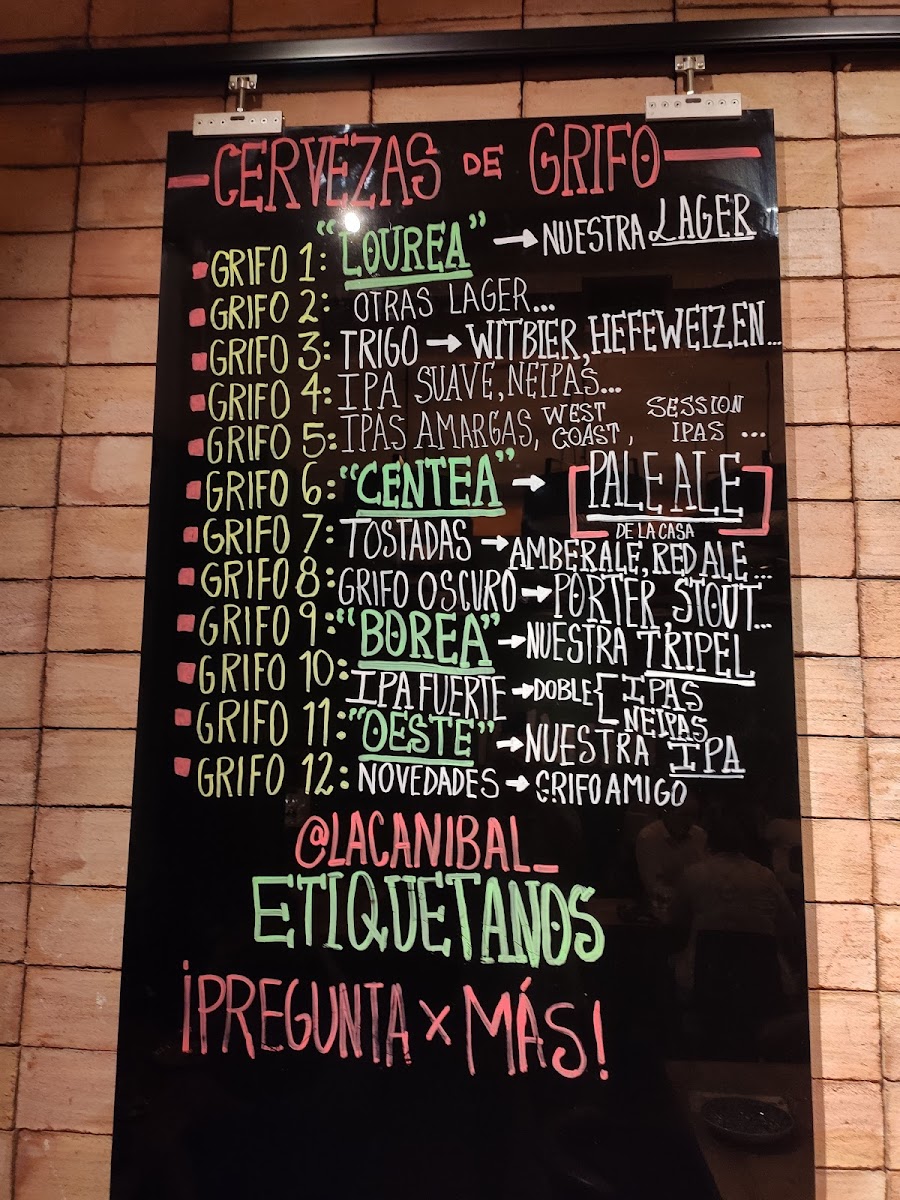 CERVEZAS DE GRIFO
GRIFO 1: "LOUREA" → NUESTRA LAGER
GRIFO 2: OTRAS LAGER...
GRIFO 3: TRIGO → WITBIER, HEFEWEIZEN...
GRIFO 4: IPA SUAVE, NEIPAS...
GRIFO 5: IPAS AMARGAS, WEST COAST, SESSION IPAS ...
GRIFO 6: "CENTEA" → [PALE ALE]
DE LA CASA
GRIFO 7: TOSTADAS → AMBER ALE, RED ALE...
GRIFO 8: GRIFO OSCURO → PORTER, STOUT...
GRIFO 9: "BOREA" → NUESTRA TRIPEL
GRIFO 10: IPA FUERTE → DOBLE { IPAS
NEIPAS
GRIFO 11: "OESTE" → NUESTRA IPA
GRIFO 12: NOVEDADES → GRIFO AMIGO
@LACANIBAL_
ETIQUETANOS
¡PREGUNTA x MÁS!